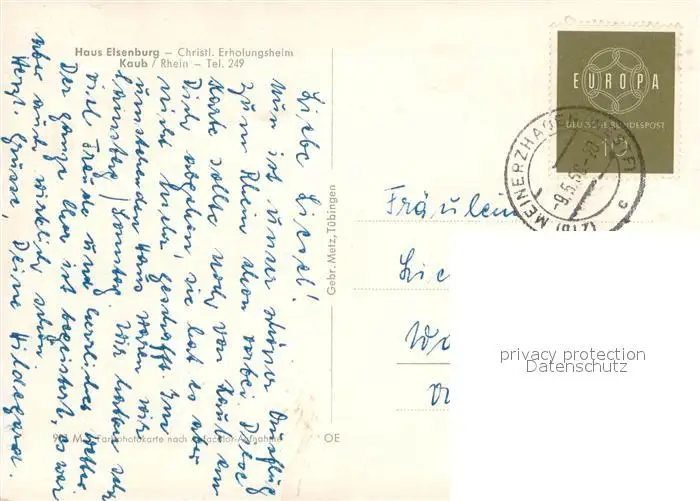 Haus Elsenburg – Christl. Erholungsheim
Kaub / Rhein – Tel. 249
Liebe Liesel!
Nun ist unser schöner Ausflug
zum Rhein schon vorbei. Diese
Karte sollte noch von Kaub an
Dich abgehen, sie hat es aber
nicht mehr geschafft. Im
umstehenden Haus waren wir
Samstag / Sonntag. Wir hatten sehr
viel Freude und herrliches Wetter.
Der ganze Chor ist begeistert, es war
aber auch wirklich schön.
Herzl. Grüsse, Deine Hildegard.
Gebr. Metz, Tübingen
Farbphotokarte nach Agfacolor-Aufnahme
OE
EUROPA
DEUTSCHE BUNDESPOST
10
MEINERZHAGEN
(21b)
c
Fräulein
privacy protection
Datenschutz